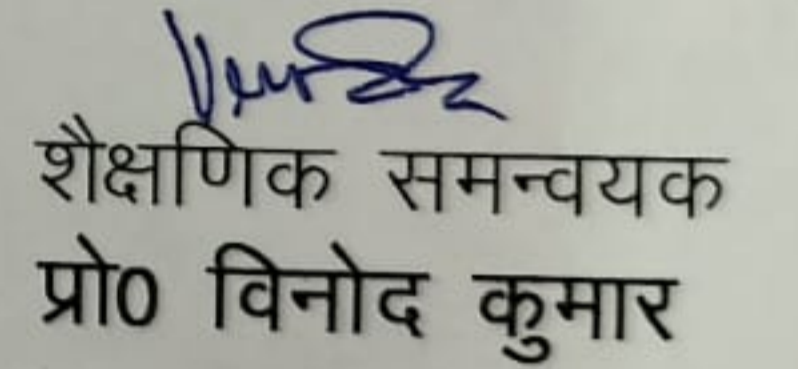 शैक्षणिक समन्वयक
प्रो0 विनोद कुमार